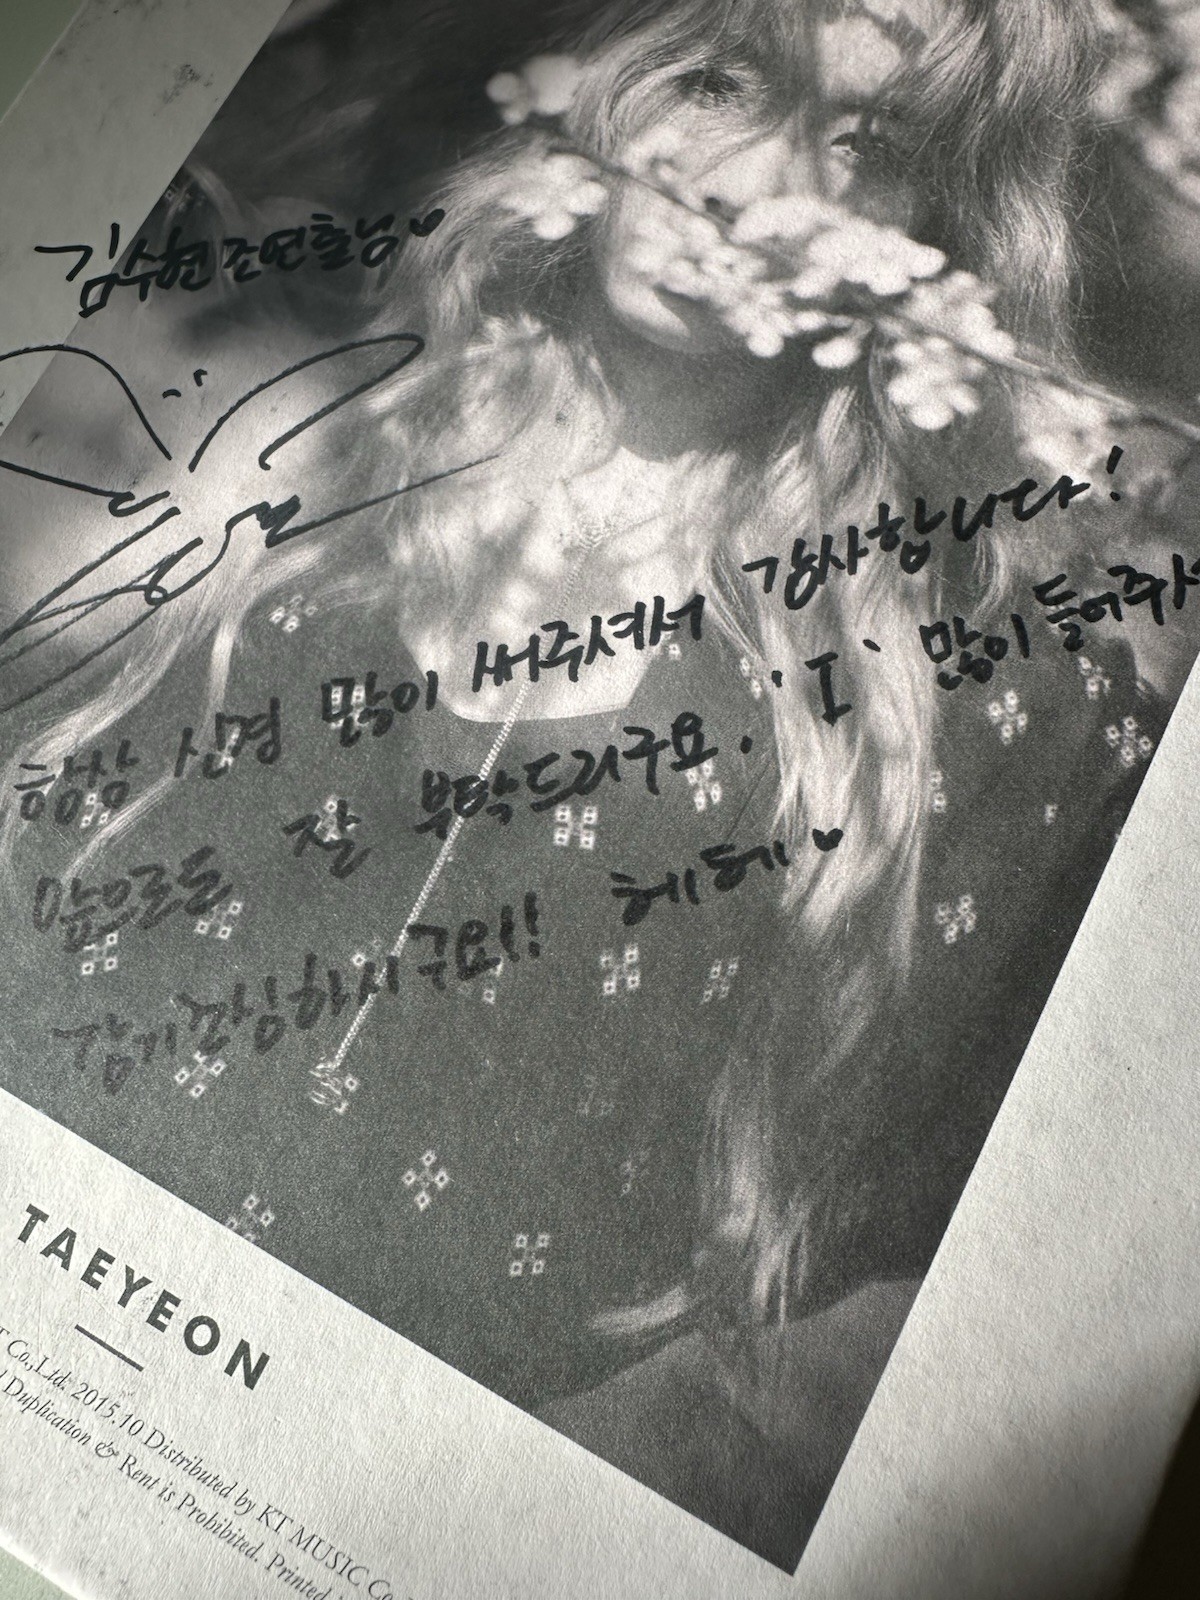 김수현 조연출님♥
항상 신경 많이 써주셔서 감사합니다!
앞으로도 잘 부탁드리구요. 'I' 많이 들어주
감기조심하시구요!! 헤헤♥
TAEYEON
Co.,Ltd. 2015.10 Distributed by KT MUSIC Co
Duplication & Rent is Prohibited. Printed